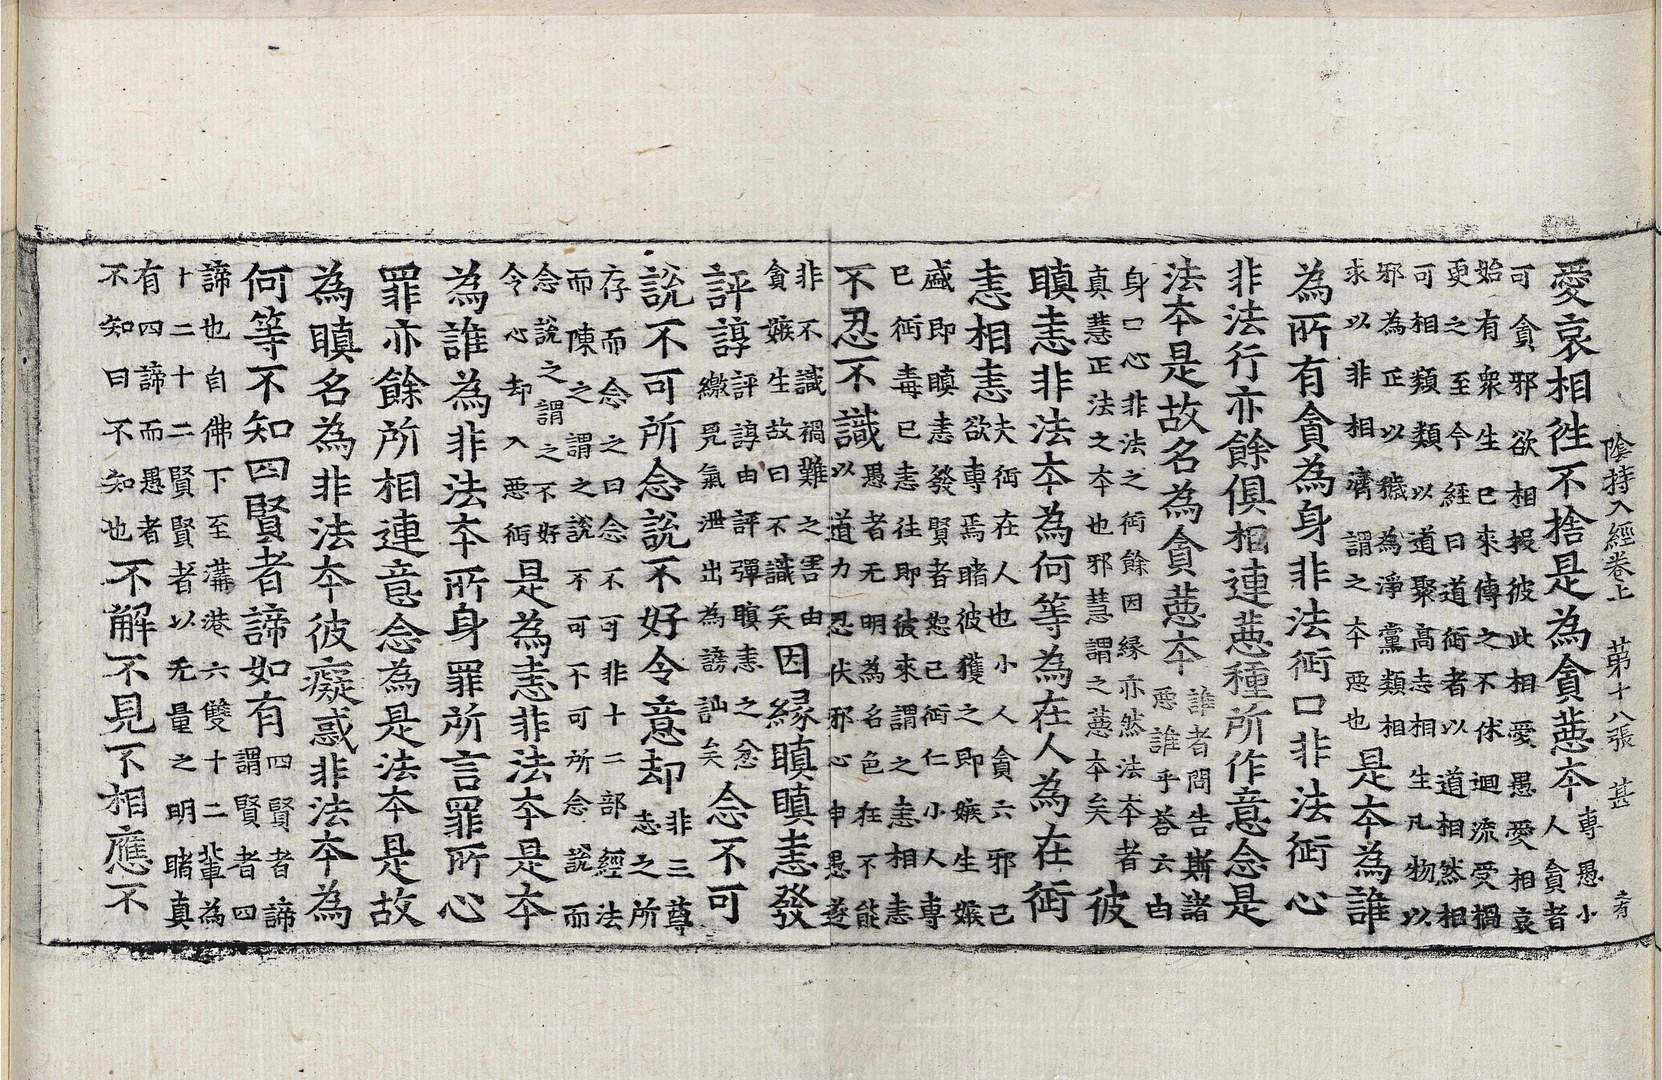 陰持入經卷上　第十八張　甚
愛哀相往不捨是為貪惡本專愚小
人貪者
可貪邪欲相報彼此相愛愚愛相哀
始有衆生已來傳之不休迴流受禍
更之至今經曰道行者以道相然相
可相類類以道聚高志相生凡物以
邪為正以穢為淨黨類相
求以非相濟謂之本惡也是本為誰
為所有貪為身非法行口非法行心
非法行亦餘俱相連惡種所作意念是
法本是故名為貪惡本誰者問告斯諸
惡誰乎荅云由
身口心非法之行餘因縁亦然法本者
真慧正法之本也邪慧謂之惡本矣彼
瞋恚非法本為何等為在人為在行
恚相恚夫行在人也小人貪六邪己
欲專焉睹彼獲之即嫉生嫉
盛即瞋恚發賢者恕己行仁小人專
已行毒已恚往即彼來謂之恚相恚
不忍不識愚者无明為名色在不能
以道力忍伏邪心申愚遂
非不識禍難之害由
貪嫉生故曰不識矣因縁瞋瞋恚發
評諄評諄由評彈瞋恚之忿
繳覓氣泄出為謗訕矣念不可
說不可所念說不好令意却非三尊
志之所
存而念之曰念不可非十二部經法
而陳之謂之說不可不可所念說而
念說之謂之不好
令心却入惡行是為恚非法本是本
為誰為非法本所身罪所言罪所心
罪亦餘所相連意念為是法本是故
為瞋名為非法本彼癡惑非法本為
何等不知四賢者諦如有四賢者諦
謂賢者四
諦也自佛下至溝港六雙十二輩為
十二十二賢賢者以无量之明睹真
有四諦而愚者
不知曰不知也不解不見不相應不